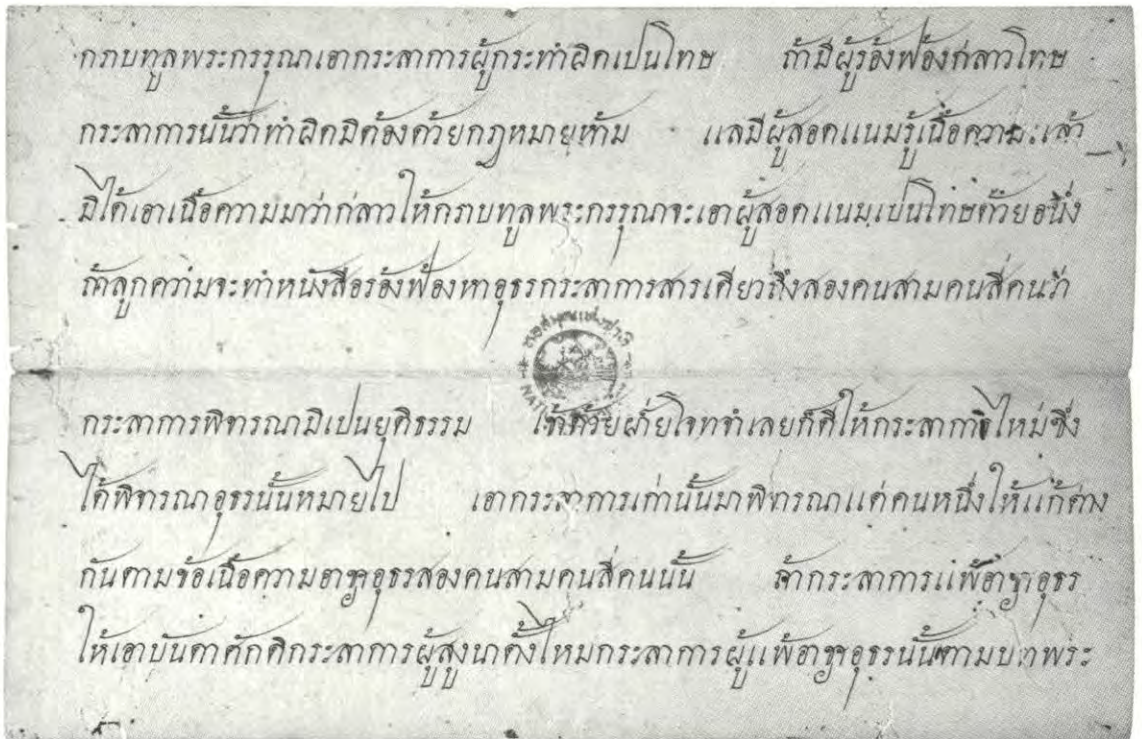 กราบทูลพระกรรุณาเอากระลาการผู้กระทำผิดเปนโทษ ถ้ามีผู้ร้องฟ้องกล่าวโทษ
กระลาการนั้นว่าทำผิดมิต้องด้วยกฎหมายห้าม แลมีผู้สอดแนมรู้เนื้อความแล้ว
มิได้เอาเนื้อความมาว่ากล่าวให้กราบทูลพระกรรุณาจะเอาผู้สอดแนมเปนโทษด้วยอนึ่ง
ถ้าลูกความจะทำหนังสือรอ้งฟ้องหาอุธรกระลาการสารเดียวถึงสองคนสามคนสี่คนว่า
หอสมุดแห่งชาติ
กระลาการพิจารณามิเปนยุติธรรม เข้าด้วยฝ่ายโจทจำเลยก็ดีให้กระลาการใหม่ซึ่ง
ได้พิจารณาอุธรนั้นหมายไป เอากระลาการเก่านั้นมาพิจารณาแต่คนหนึ่งให้แก้ต่าง
กันตามข้อเนื้อความอาชญอุธรสองคนสามคนสี่คนนั้น ถ้ากระลาการแพ้อาชญอุธร
ให้เอาบันดาศักดิกระลาการผู้สูงนาตั้งไหมกระลาการผู้แพ้อาชญอุธรนั้นตามบทพระ